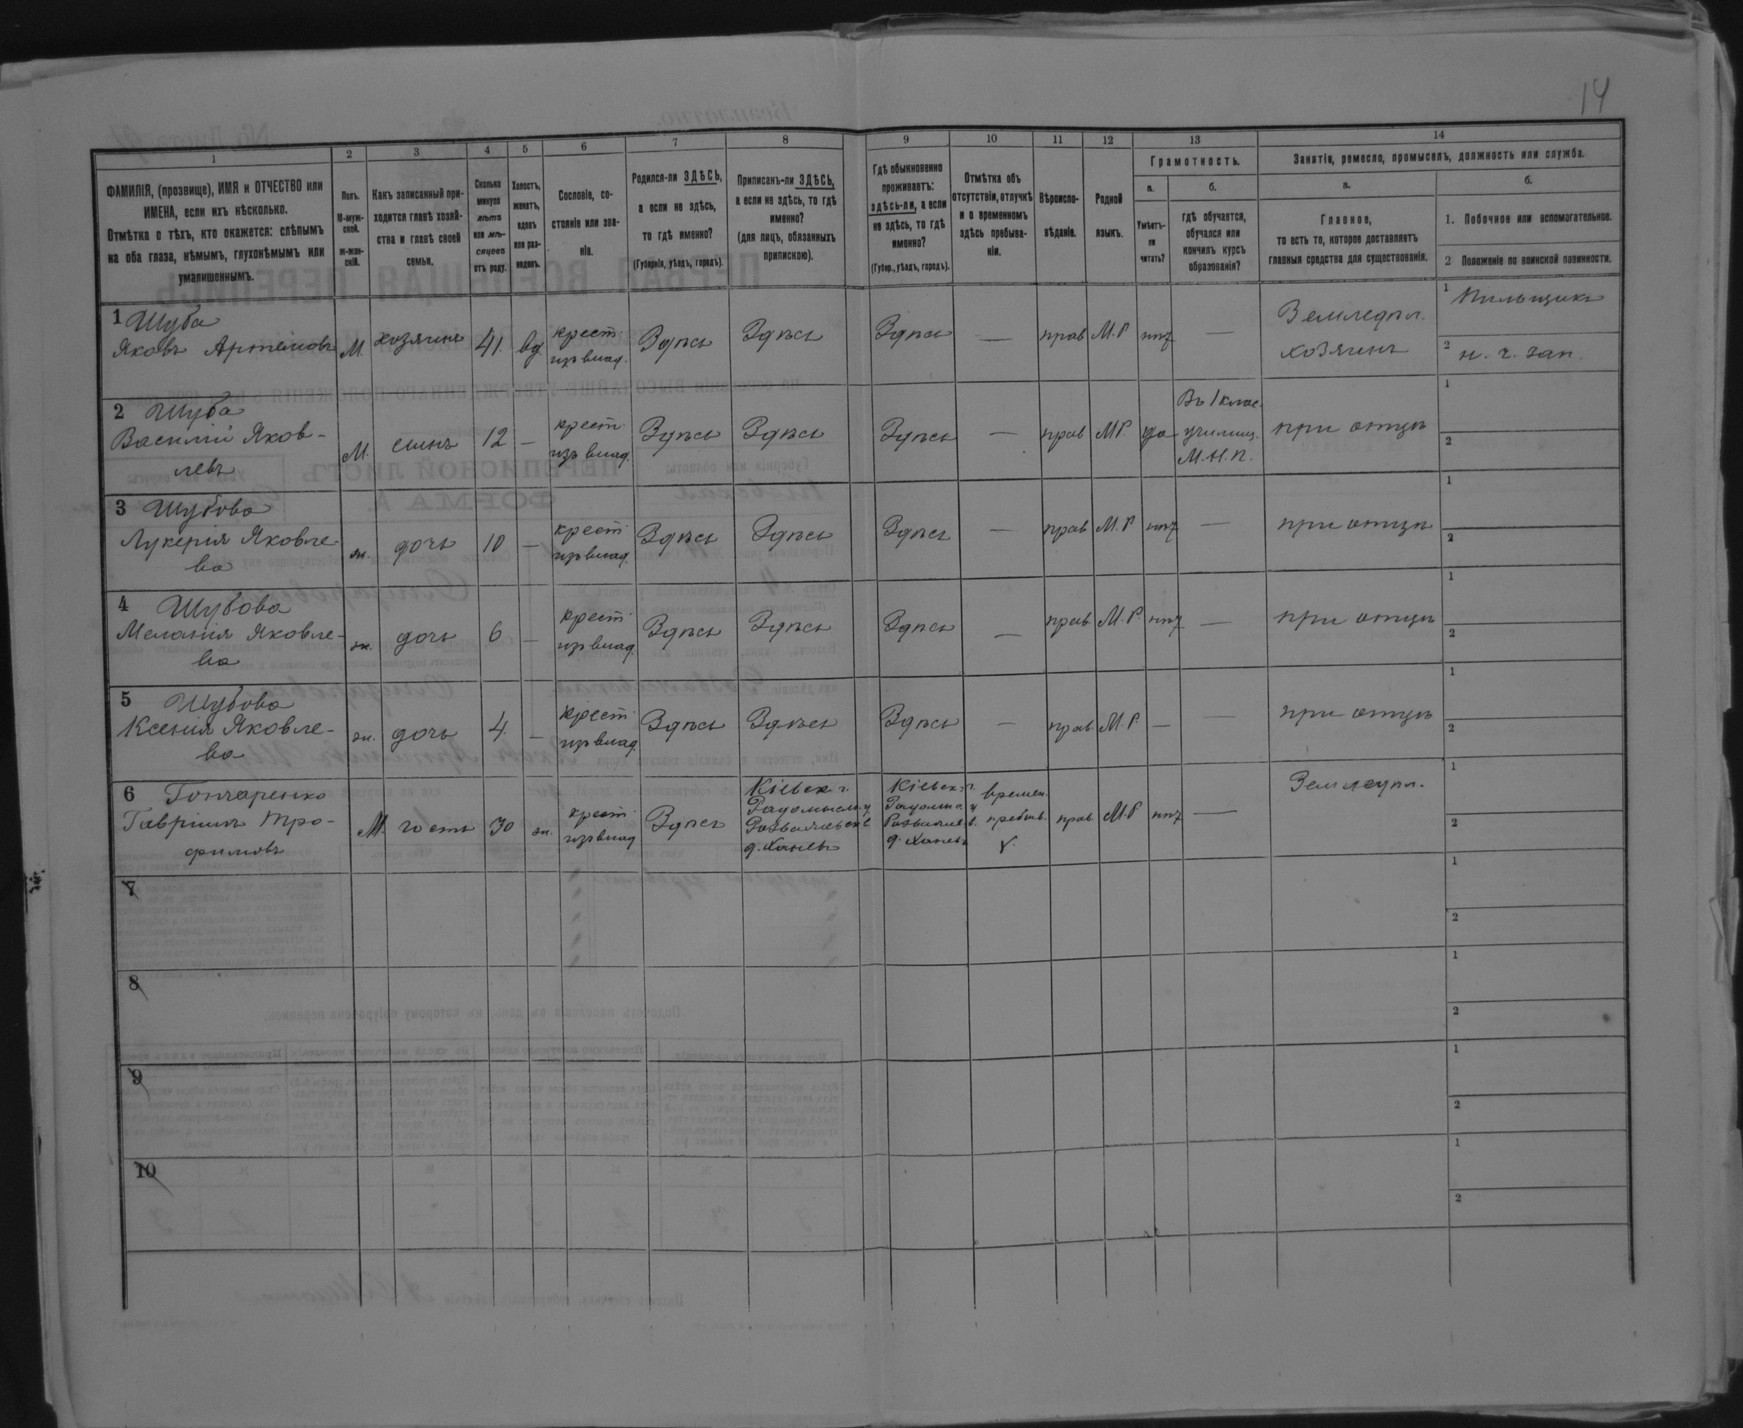 14
1
2
3
4
5
6
7
8
9
10
11
12
13
14
ФАМИЛІЯ, (прозвище), ИМЯ и ОТЧЕСТВО или
ИМЕНА, если ихъ нѣсколько.
Отмѣтка о тѣхъ, кто окажется: слѣпымъ
на оба глаза, нѣмымъ, глухонѣмымъ или
умалишеннымъ.
Полъ.
М-муж-
ской.
ж-жен-
скій.
Какъ записанный при-
ходится главѣ хозяй-
ства и главѣ своей
семьи.
Сколько
минуло
лѣтъ
или мѣ-
сяцевъ
отъ роду.
Холостъ,
женатъ,
вдовъ
или раз-
веденъ.
Сословіе, со-
стояніе или зва-
ніе.
Родился-ли ЗДѢСЬ,
а если не здѣсь,
то гдѣ именно?
(Губернія, уѣздъ, городъ).
Приписанъ-ли ЗДѢСЬ,
а если не здѣсь, то гдѣ
именно?
(для лицъ, обязанныхъ
припискою).
Гдѣ обыкновенно
проживаетъ:
здѣсь-ли, а если
не здѣсь, то гдѣ
именно?
(Губер., уѣздъ, городъ).
Отмѣтка объ
отсутствіи, отлучкѣ
и о временномъ
здѣсь пребыва-
ніи.
Вѣроиспо-
вѣданіе.
Родной
языкъ.
Грамотность.
а.
Умѣетъ-
ли
читать?
б.
гдѣ обучается,
обучался или
кончилъ курсъ
образованія?
Занятіе, ремесло, промыселъ, должность или служба.
а.
Главное,
то есть то, которое доставляетъ
главныя средства для существованія.
б.
1. Побочное или вспомогательное.
2 Положеніе по воинской повинности.
1 Шуба
Яковъ Артемовъ М. хозяинъ 41. вд. крест. изъ влад. Здѣсь Здѣсь Здѣсь — прав М.Р нѣт — Земледѣл. хозяинъ
1 Пильщикъ
2 н. ч. зап.
2 Шуба
Василій Яков-
левъ М. сынъ 12 — крест. изъ влад. Здѣсь Здѣсь Здѣсь — прав М.Р. да Въ 1 клас. училищ. М.Н.П. при отцѣ
1
2
3 Шубова
Лукерія Яковле-
ва ж. дочь 10 — крест. изъ влад. Здѣсь Здѣсь Здѣсь — прав М.Р нѣт — при отцѣ
1
2
4 Шубова
Меланія Яковле-
ва ж. дочь 6 — крест. изъ влад. Здѣсь Здѣсь Здѣсь — прав М.Р нѣт — при отцѣ
1
2
5 Шубова
Ксенія Яковле-
ва ж. дочь 4. — крест. изъ влад. Здѣсь Здѣсь Здѣсь — прав М.Р. — — при отцѣ
1
2
6 Гончаренко
Гавріилъ Тро-
фимовъ М. гость 30 ж. крест. изъ влад Здѣсь
Кіевск г.
Радомысл. у
д. Ханевъ
Кіевск. г.
д. Ханевъ
времен.
пребыв.
прав М.Р нѣт — Земледѣл.
1
2
7
1
2
8
1
2
9
1
2
10
1
2